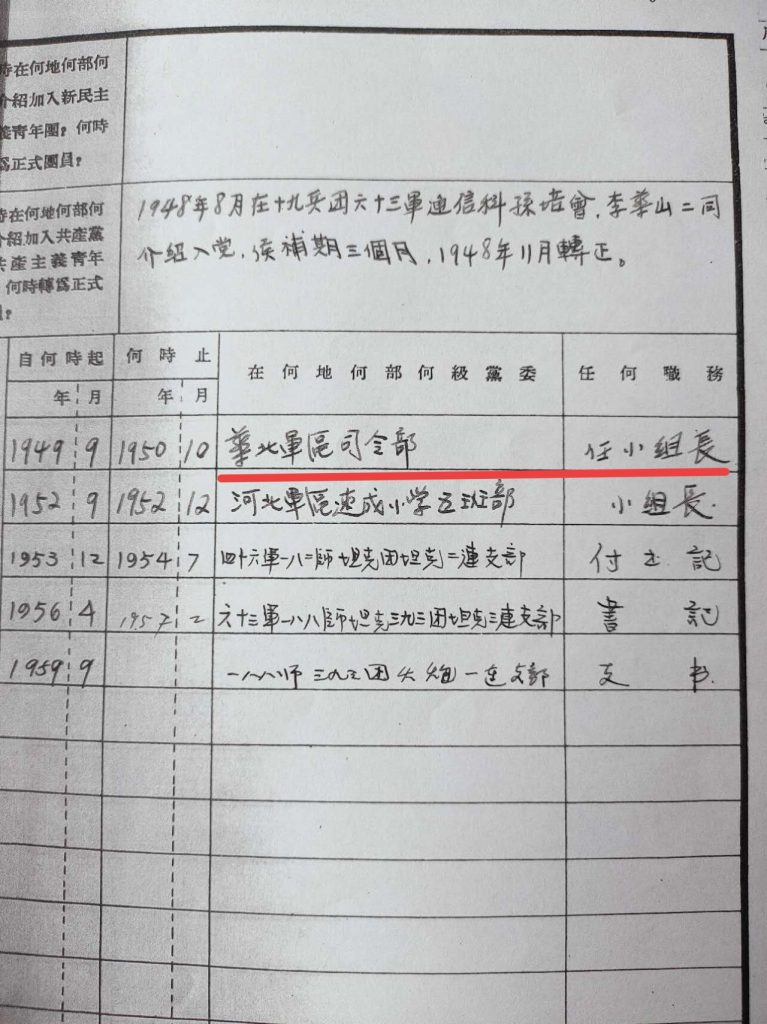 時在何地何部何
介紹加入新民主
義靑年團？何時
爲正式團員？
時在何地何部何
介紹加入共產黨
共產主義青年
何時轉爲正式
1948年8月在十九兵团六十三軍通信科孫培會、李華山二同
介紹入党，侯補期三個月，1948年11月轉正。
自何時起 何時止 在何地何部何級黨委 任何職務
年 月 年 月
1949 9 1950 10 華北軍區司令部 任小組長
1952 9 1952 12 河北軍區速成小学五班部 小組長
1953 12 1954 7 四十六軍一八二師坦克团坦克二連支部 付书記
1956 4 1957 2 六十三軍一八八師坦克三九三团坦克三連支部 書記
1959 9 一八八师三九三团大炮一连支部 支书